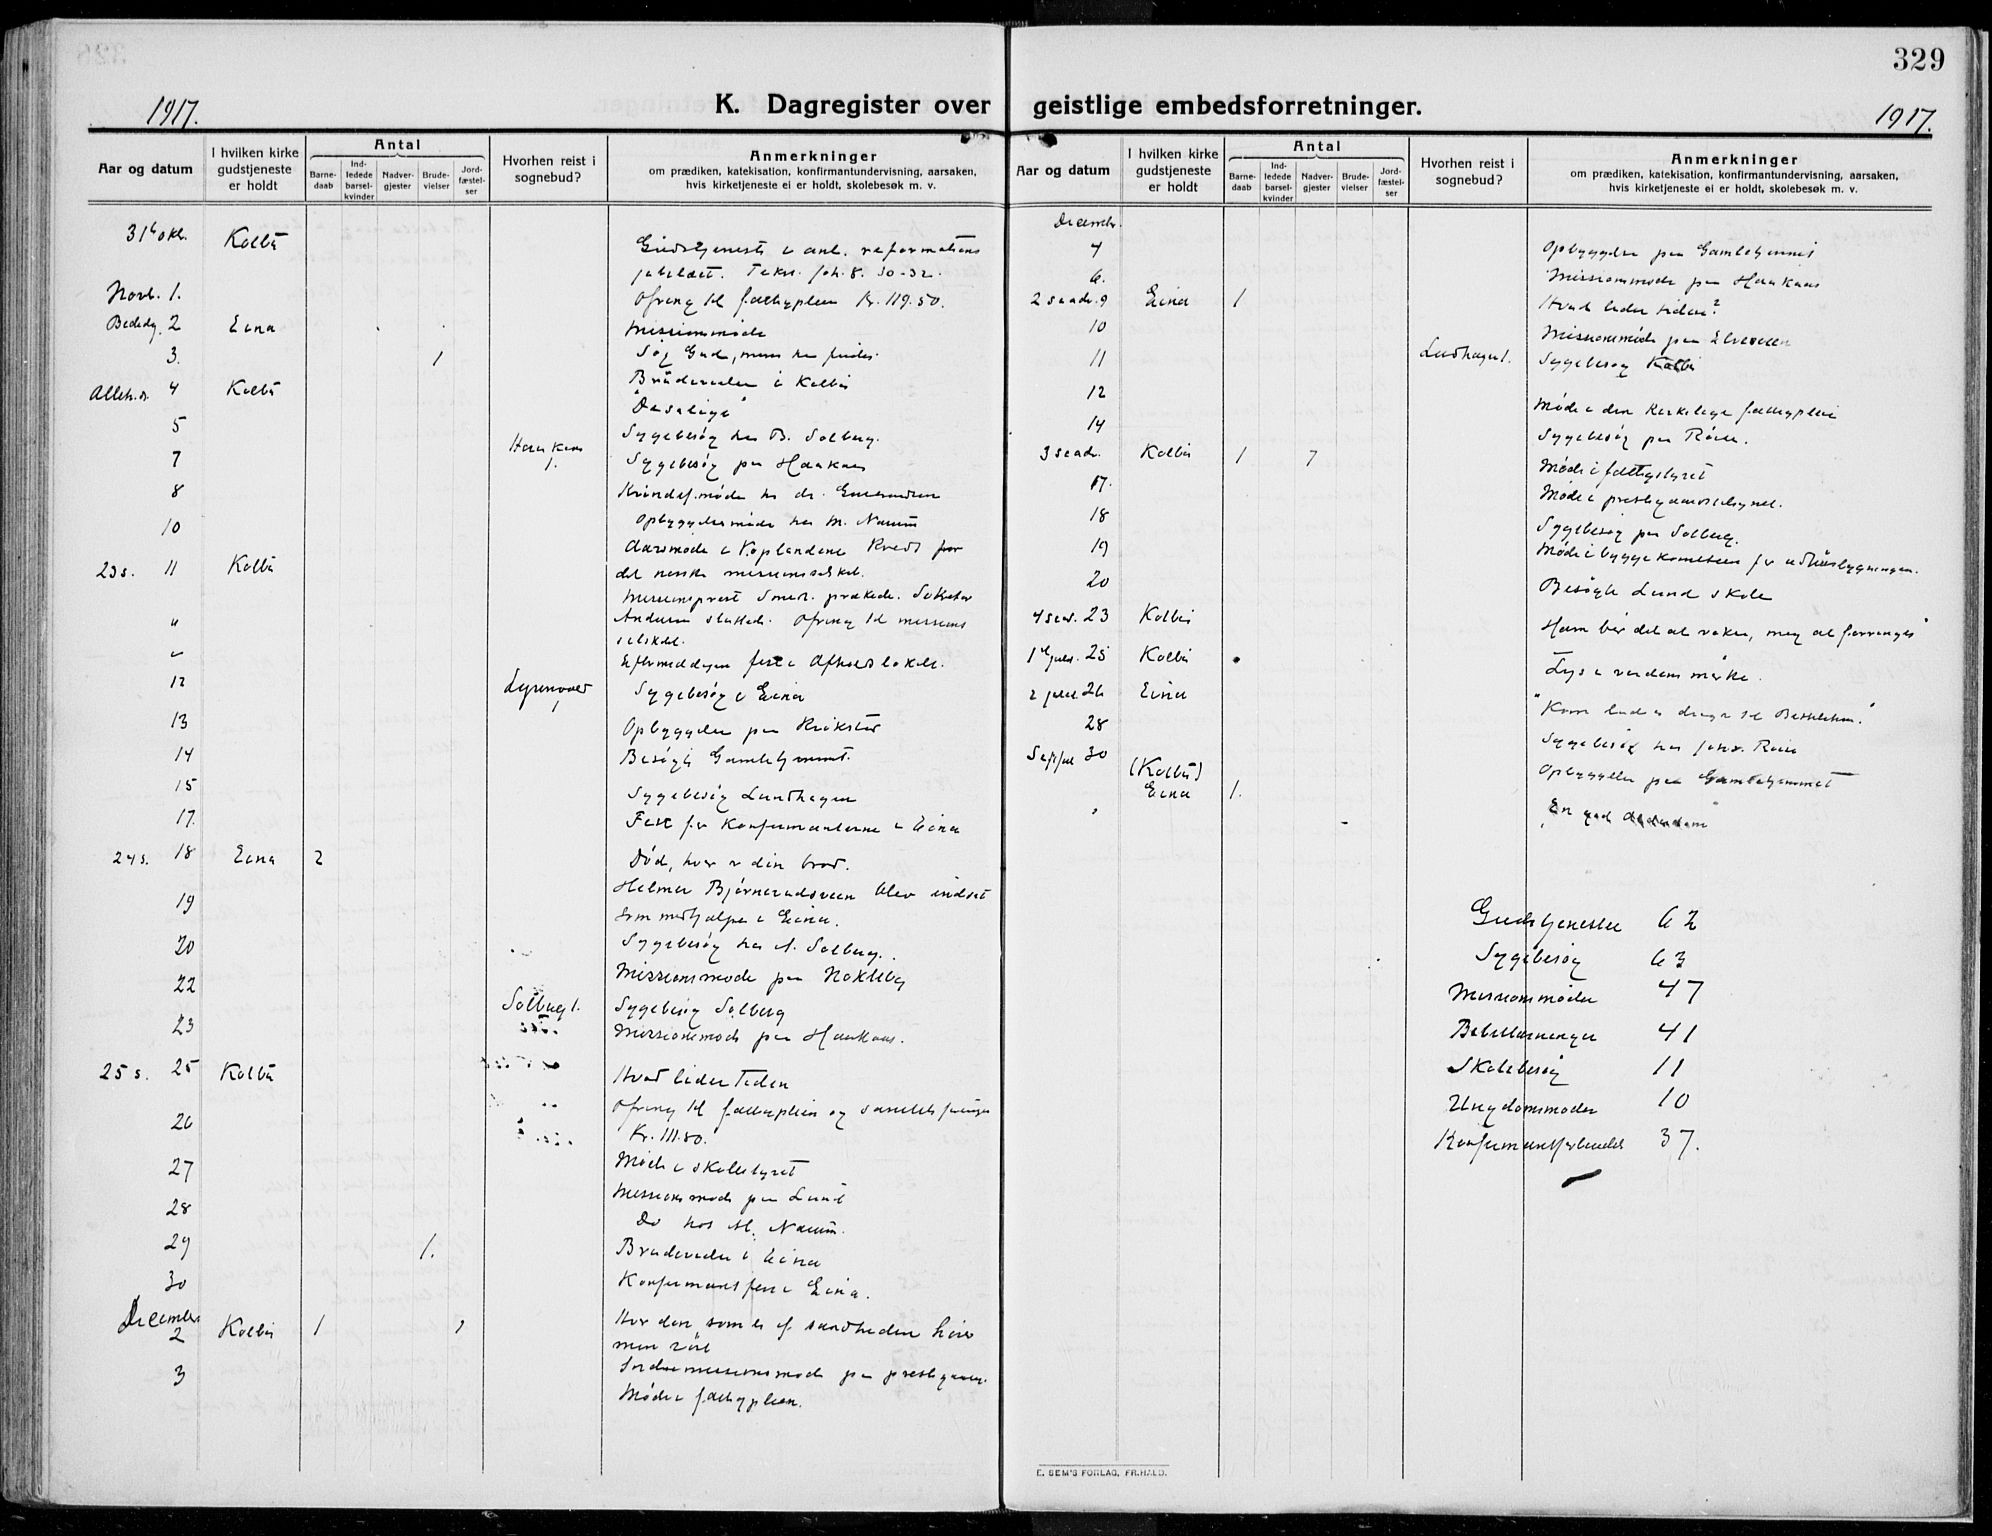 329
1917.
K. Dagregister over geistlige embedsforretninger.
1917.
Aar og datum
I hvilken kirke gudstjeneste er holdt
Antal
Barnedaab
Indledede barselkvinder
Nadvergjester
Brudevielser
Jordfæstelser
Hvorhen reist i sognebud?
Anmerkninger
om prædiken, katekisation, konfirmantundervisning, aarsaken, hvis kirketjeneste ei er holdt, skolebesøk m. v.
31te okt. Kolbu
Gudstjeneste i anl. reformations
jubilæet. Tekst. Joh. 8. 30-32.
Novb. 1. Ofring til fattigpleien Kr. 119.50.
Bededg. 2 Eina Missionsmøde
3. 1 Søg Gud, mens han findes.
Alleh.d. 4 Kolbu Brudevielse i Kolbu
"De salige"
5 Sygebesøg hos B. Solberg.
7 Haakaas 1. Sygebesøg paa Haakaas
8 Kvindef.møde hos dr.
10 Opbyggelsesmøde hos M. Narum
Aarsmøde i Oplandene Kreds for
23 s. 11 Kolbu det norske missionsselskab.
Missionsprest prækede. Sekretær
" Andersen sluttede. Ofring til missions
selskabet.
" Eftermiddagen fest i Afholdslokalet.
12 1 Sygebesøg i Eina
13 Opbyggelse paa
14 Besøgt Gamlehjemmet.
15 Sygebesøg Lundhagen
17. Fest for Konfirmanterne i Eina
24 s. 18 Eina 2 Død, hvor er din brod.
Helmer Bjørnerudsveen blev indsat
19 som medhjælper i Eina.
20 Sygebesøg hos A. Solberg.
22 Missionsmøde paa Nøkleby
Solberg 1. Sygebesøg Solberg
23 Missionsmøde paa Haakaas.
25 s. 25 Kolbu Hvad lider Tiden
Ofring til fattigpleien og
26 Kr. 111.80.
27 Møde i skolestyret
Missionsmøde paa Lund
28 Do hos M. Narum.
29 1. Brudevielse i Eina
30 Konfirmantfest i Eina.
December
2 Kolbu 1 1 Hver den som er af sandheden hører
min røst
3 Indremissionsmøde paa prestegaarden.
Møde i fattigpleien.
Aar og datum
I hvilken kirke gudstjeneste er holdt
Antal
Barnedaab
Indledede barselkvinder
Nadvergjester
Brudevielser
Jordfæstelser
Hvorhen reist i sognebud?
Anmerkninger
om prædiken, katekisation, konfirmantundervisning, aarsaken, hvis kirketjeneste ei er holdt, skolebesøk m. v.
Decembr.
4 Opbyggelse paa Gamlehjemmet
6. Missionsmøde paa Haakaas
2 s i adv. 9 Eina 1 Hvad lider tiden?
10 Missionsmøde paa Elveveien
11 Lundhagen 1. Sygebesøg Kolbu
12 Møde i den Kirkelige fattigpleie
14 Sygebesøg paa Røise.
3 s i adv. Kolbu 1 7 Møde i fattigstyret
17. Møde i
18 Sygebesøg paa Solberg.
19 Møde i byggekomiteen for
20 Besøgte Lund skole
4 s i adv. 23 Kolbu Ham bør det at vokse, meg at forringes"
1ste juled. 25 Kolbu Lys i verdens mørke.
2 juled 26 Eina "Kom lad os drage til Bethlehem."
28 Sygebesøg hos Johs. Røise
S e jul 30 (Kolbu) Opbyggelse paa Gamlehjemmet
Eina 1.
"En god
Gudstjenester 62
Sygebesøg 63
Missionsmøder 47
Bibellæsninger 41
Skolebesøg 11
Ungdomsmøder 10
Konfirmantforberedels 37.
E. SEM'S FORLAG, FR.HALD.